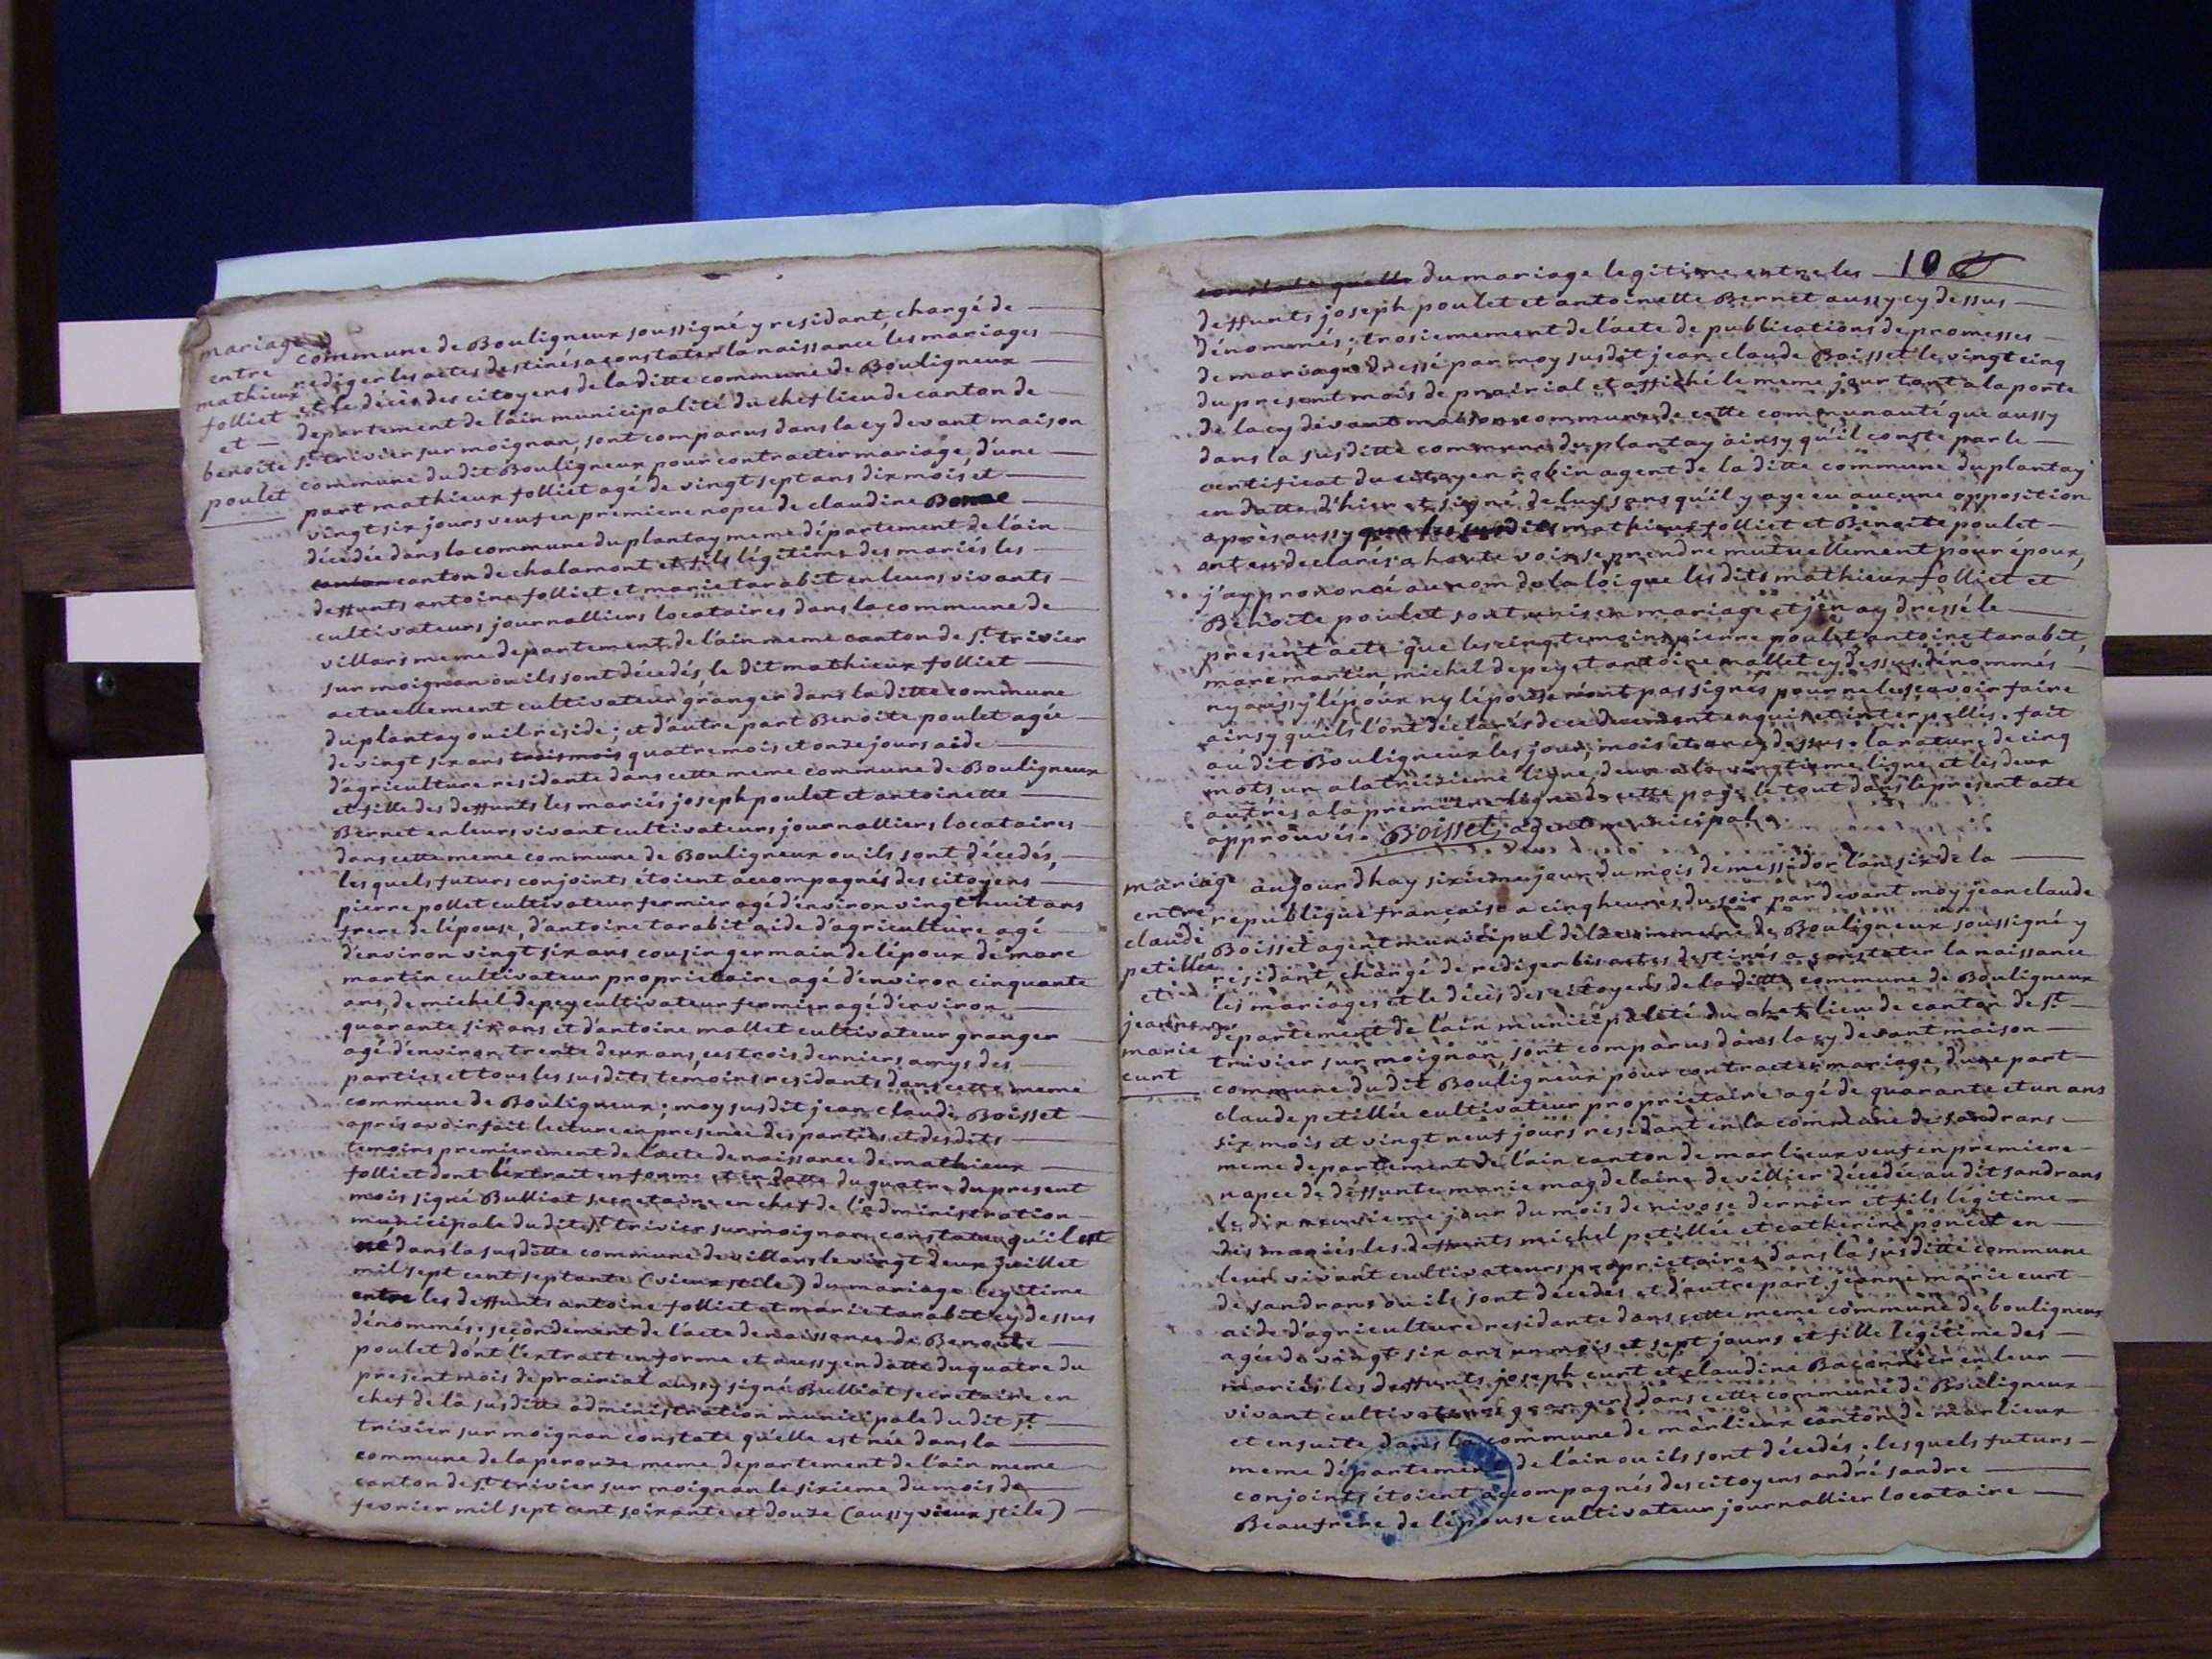 mariage
entre
mathieux
folliet
et
benoite
poulet
commune de Bouligneux soussigné y residant chargé de
rediger les actes destinés a constater la naissance les mariages
et le décès des citoyens de la ditte commune de Bouligneux
departement de l'ain municipalité du chef lieu de canton de
st. trivier sur moignan, sont comparus dans la cy devant maison
commune du dit Bouligneux pour contracter mariage, d'une
part mathieux folliet agé de vingt sept ans dix mois, et
vingt six jours veuf en premiere nopce de claudine
décédée dans la commune du plantay meme département de l'ain
canton canton de chalamont et fils légitime des mariés les
deffunts antoine folliet et marie tarabit en leurs vivants
cultivateurs journalliers locataires dans la commune de
villars meme departement de l'ain meme canton de st. trivier
sur moignan ou ils sont décedés, le dit mathieux folliet
actuellement cultivateur granger dans la ditte commune
du plantay ou il reside; et d'autre part Benoite poulet agée
de vingt six ans trois mois quatre mois et onze jours aide
d'agriculture residante dans cette meme commune de Bouligneux
et fille des deffunts les mariés joseph poulet et antoinette
Bernet en leurs vivant cultivateurs journalliers locataires
dans cette meme commune de Bouligneux ou ils sont décedés,
les quels futurs conjoints étoient accompagnés des citoyens
pierre pollet cultivateur fermier agé d'environ vingt huit ans
frere de l'épouse, d'antoine tarabit aide d'agriculture agé
d'environ vingt six ans cousin germain de l'époux de marc
martin cultivateur proprietaire agé d'environ cinquante
ans, de michel depey cultivateur fermier agé d'environ
quarante six ans et d'antoine mallet cultivateur granger
agé d'environ trente deux ans, ces trois derniers amys des
parties et tous les susdits temoins residants dans cette meme
commune de Bouligneux; moy susdit jean claude Boisset
aprés avoir fait lecture en presence des parties et des dits
temoins premierement de l'acte de naissance de mathieux
folliet dont l'extrait en forme et en datte du quatre du present
mois signé Bulliat secretaire en chef de l'administration
municipale du dit st trivier sur moignan constate qu'il est
né dans la susditte commune de villars le vingt deux juillet
mil sept cent septante (vieux stile) du mariage légitime
entre les deffunts antoine folliet et marie tarabit cy dessus
dénommés; secondement de l'acte de naissance de Benoite
poulet dont l'extrait en forme et aussy en datte du quatre du
present mois de prairial aussy signé Bulliat secretaire en
chef de la susditte administration municipale du dit st.
trivier sur moignan constate qu'elle est née dans la
commune de la perouze meme departement de l'ain meme
canton de st. trivier sur moignan le sixieme du mois de
fevrier mil sept cent soixante et douze (aussy vieux stile)
10
constate qu'elle du mariage legitime entre les
deffunts joseph poulet et antoinette Bernet aussy cy dessus
dénommés; trosiemement de l'acte de publications de promesses
de mariage dressé par moy susdit jean claude Boisset le vingt cinq
du present mois de prairial et affiché le meme jour tant a la porte
de la cy devant maison commune de cette communauté que aussy
dans la susditte commune du plantay ainsy qu'il conste par le
certificat du citoyen robin agent de la ditte commune du plantay
en datte d'hier et signé de luy sans qu'il y aye eu aucune opposition
après aussy que les susdits mathieux folliet et Benoite poulet
ont eu declarés a haute voix se prendre mutuellement pour époux,
j'ay prononcé au nom de la loi que les dits mathieux folliet et
Benoite poulet sont unis en mariage et j'en ay dressé le
present acte que les cinq temoins pierre poulet antoine tarabit,
marc martin, michel depey et antoine mallet cy dessus dénommés
ny aussy l'époux ny l'épouse n'ont pas signés pour ne le sçavoir faire
ainsy qu'ils l'ont déclarés de ce duement enquis et interpellés. fait
au dit Bouligneux les jour, mois et an cy dessus. la rature de cinq
mots un a la treizieme ligne, deux a la vingtieme ligne et les deux
autres a la premiere ligne de cette page le tout dans le present acte
approuvés. Boisset, agent municipal
mariage
entre
claude
petillée
et
jeanne
marie
curt
aujourdhuy sixieme jour du mois de messidor l'an six de la
republique française a cinq heures du soir par devant moy jean claude
Boisset agent municipal de la commune de Bouligneux soussigné y
residant chargé de rediger les actes destinés a constater la naissance
les mariages et le décès des citoyens de la ditte commune de Bouligneux
departement de l'ain municipalité du chef lieu de canton de st.
trivier sur moignan, sont comparus dans la cy devant maison
commune du dit Bouligneux pour contracter mariage, d'une part
claude petillée cultivateur propriétaire agé de quarante et un ans
six mois et vingt neuf jours residant en la commune de sandrans
meme departement de l'ain canton de marlieux veuf en premiere
nopce de deffunte marie magdelaine devillier décedée au dit sandrans
le dix neuvieme jour du mois de nivose dernier et fils légitime
des mariés les deffunts michel petillée et catherine poncet en
leur vivant cultivateurs proprietaires dans la susditte commune
de sandrans ou ils sont décedés et d'autre part jeanne marie curt
aide d'agriculture residante dans cette meme commune de bouligneux
agée de vingt six ans un mois et sept jours et fille légitime des
mariés les deffunts joseph curt et claudine Baconnier en leur
vivant cultivateurs grangers dans cette commune de Bouligneux
et ensuite dans la commune de marlieux canton de marlieux
meme département de l'ain ou ils sont décedés. lesquels futurs
conjoints étoient accompagnés des citoyens andré sandre
Beaufrere de l'épouse cultivateur journallier locataire